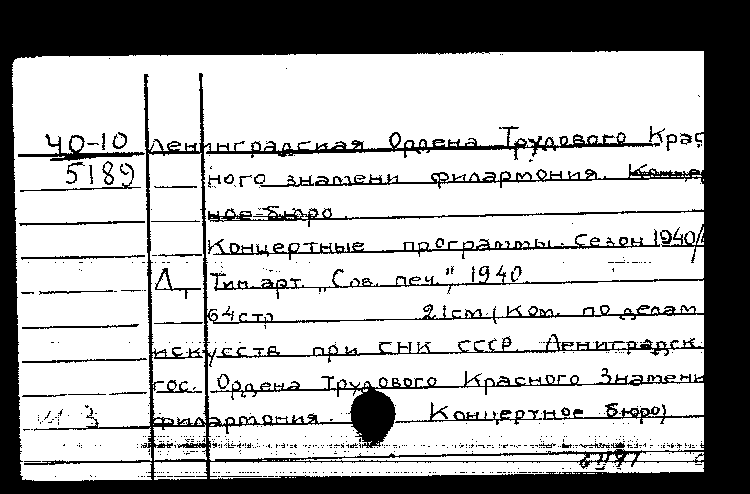 40-10 Ленинградская Ордена Трудового Крас
5189 ного знамени филармония. Концер
ное бюро.
Концертные программы. Сезон 1940/
Л., Тип. арт. „Сов. печ.", 1940.
64 стр 21см. (Ком. по делам
искусств при СНК СССР. Ленинградск.
гос. Ордена Трудового Красного Знамени
филармония. Концертное бюро)